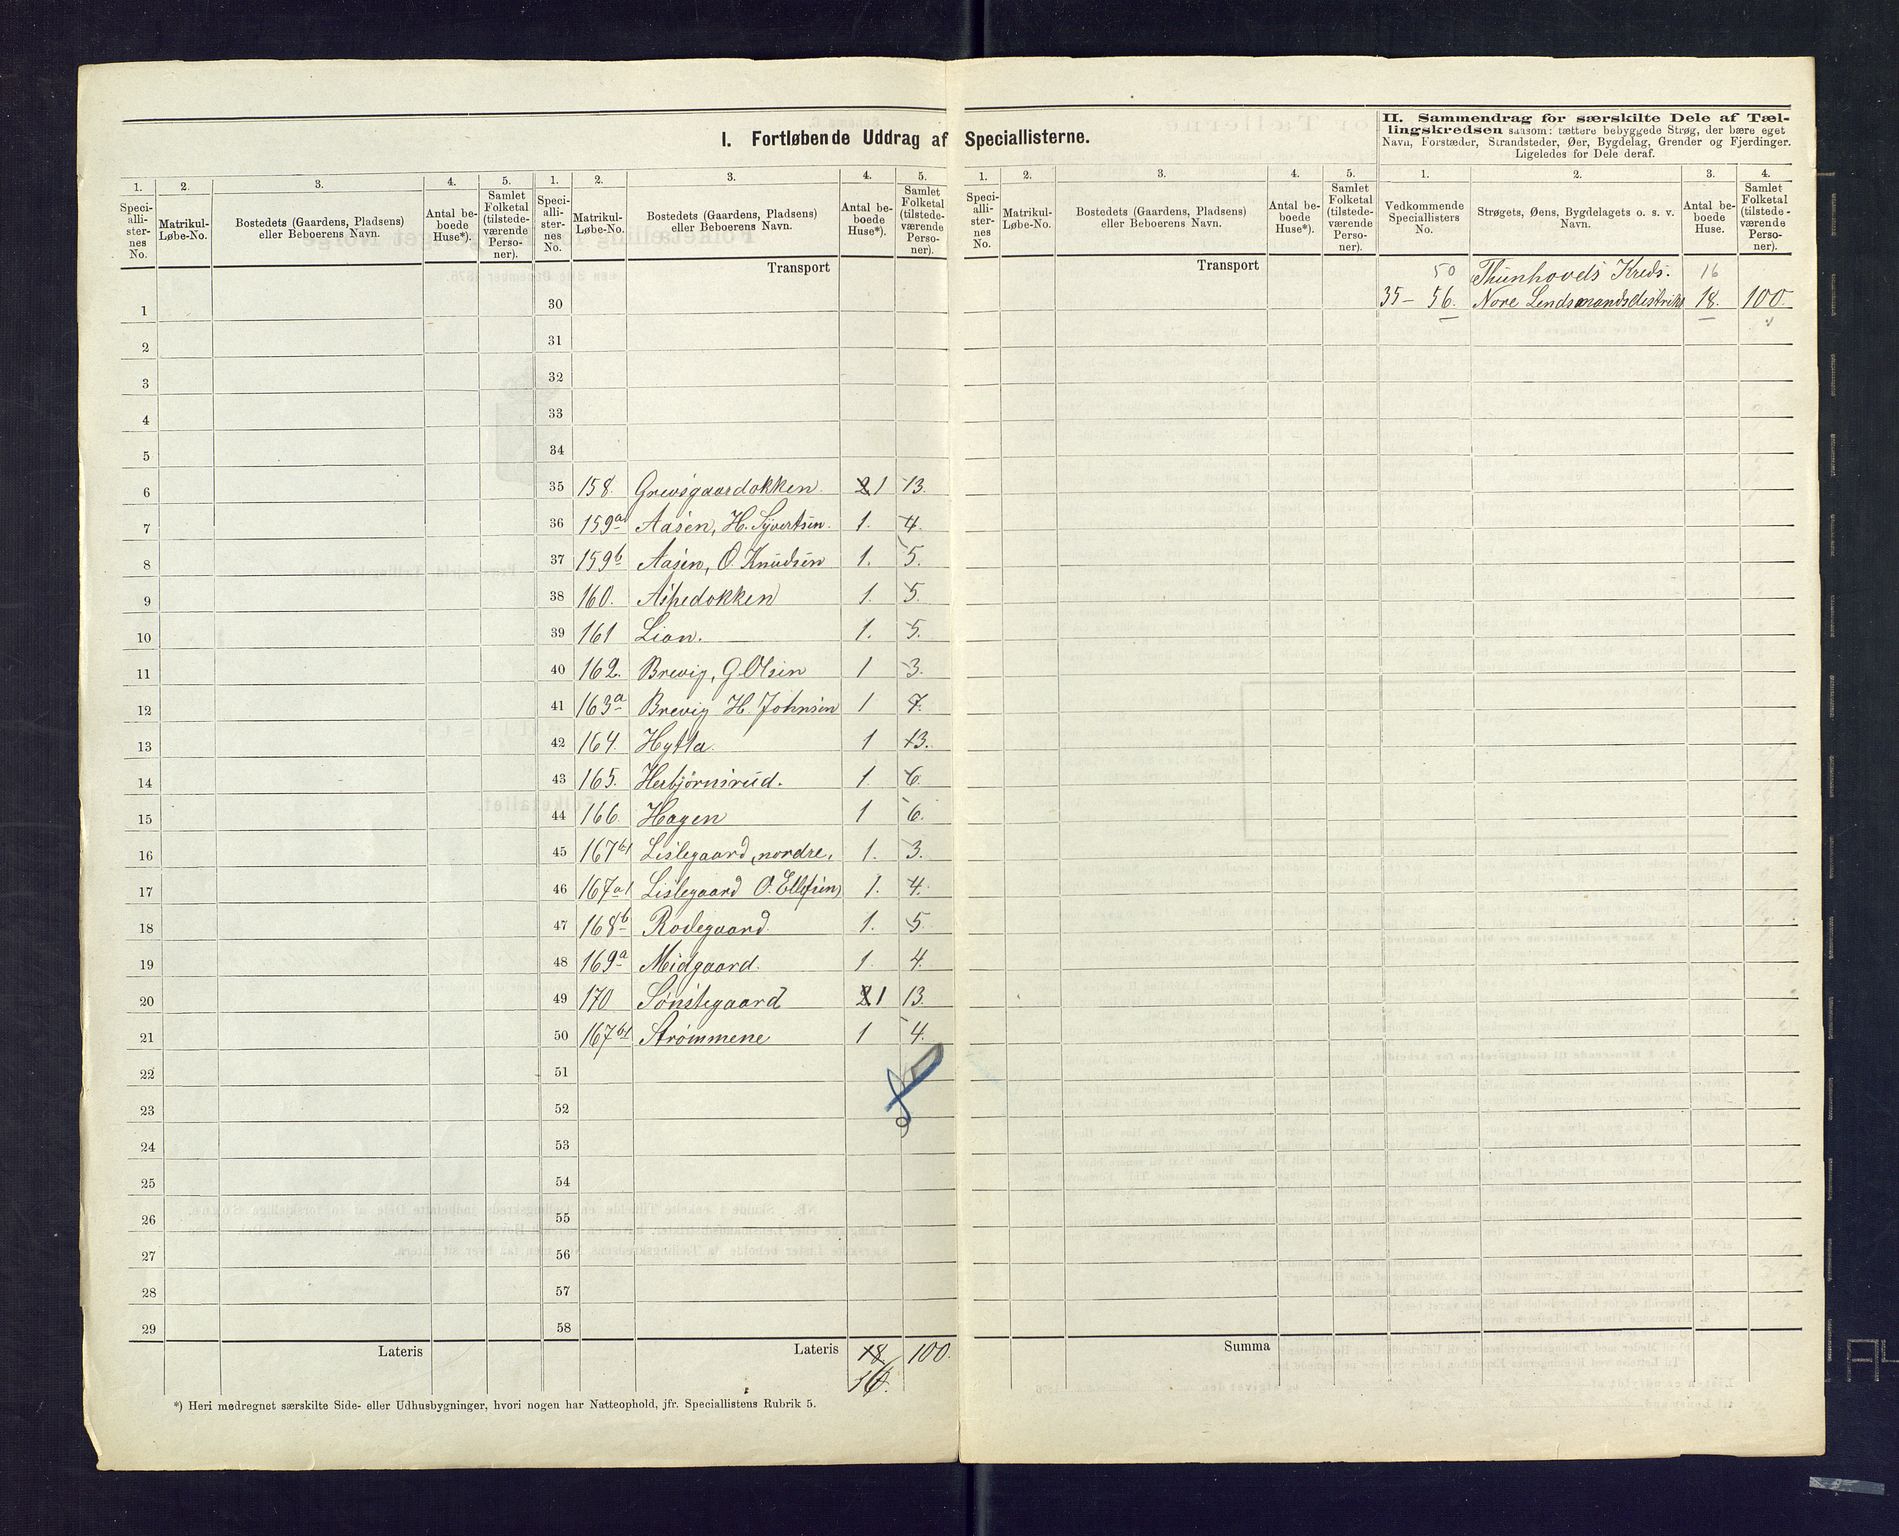 I. Fortløbende Uddrag af Speciallisterne.
II. Sammendrag for særskilte Dele af Tæl-
lingskredsen saasom: tættere bebyggede Strøg, der bære eget
Navn, Forstæder, Strandsteder, Øer, Bygdelag, Grender og Fjerdinger.
Ligeledes for Dele deraf.
1. 2. 3. 4. 5. 1. 2. 3. 4. 5. 1. 2. 3. 4. 5. 1. 2. 3. 4.
Speci-
alli-
ster-
nes
No.
Matrikul-
Løbe-No.
Bostedets (Gaardens, Pladsens)
eller Beboerens Navn.
Antal be-
boede
Huse*).
Samlet
Folketal
(tilstede-
værende
Perso-
ner).
Speci-
alli-
ster-
nes
No.
Matrikul-
Løbe-No.
Bostedets (Gaardens, Pladsens)
eller Beboerens Navn.
Antal be-
boede
Huse*).
Samlet
Folketal
(tilstede-
værende
Perso-
ner).
Speci-
alli-
ster-
nes
No.
Matrikul-
Løbe-No.
Bostedets (Gaardens, Pladsens)
eller Beboerens Navn.
Antal be-
boede
Huse*).
Samlet
Folketal
(tilstede-
værende
Perso-
ner).
Vedkommende
Speciallisters
No.
Strøgets, Øens, Bygdelagets o. s. v.
Navn.
Antal be-
boede
Huse.
Samlet
Folketal
(tilstede-
værende
Perso-
ner).
Transport
Transport
50 Thunhovds Kreds. 16
35-56. Nore Lendsmandsdistrikt 18. 100.
1 30
2 31
3 32
4 33
5 34
6 35 158. Grevsgaardokken. 2 1 13.
7 36 159a Aasen, H. Syvertsen. 1. 4.
8 37 159b Aasen, O. Knudsen 1. 5.
9 38 160. Aspedokken 1. 5.
10 39 161 Lion. 1. 5.
11 40 162. Brevig, G Olsen 1 3.
12 41 163a Brevig H. Johnsen 1 7.
13 42 164. Hytta. 1 13.
14 43 165. Herbjørnsrud. 1. 6.
15 44 166. Hagen 1 6.
16 45 167b1 Lislegaard, nordre, 1. 3.
17 46 167a1 Lislegaard O. Ellefsen, 1. 4.
18 47 168b Rodegaard. 1. 5.
19 48 169a Midgaard. 1. 4.
20 49 170 Sønstegaard 2 1 13.
21 50 167b1 Strømmene 1 4.
22 51
23 52
24 53
25 54
26 55
27 56
28 57
29 58
Lateris
Lateris 18 100.
16.
Summa
*) Heri medregnet særskilte Side- eller Udhusbygninger, hvori nogen har Natteophold, jfr. Speciallistens Rubrik 5.